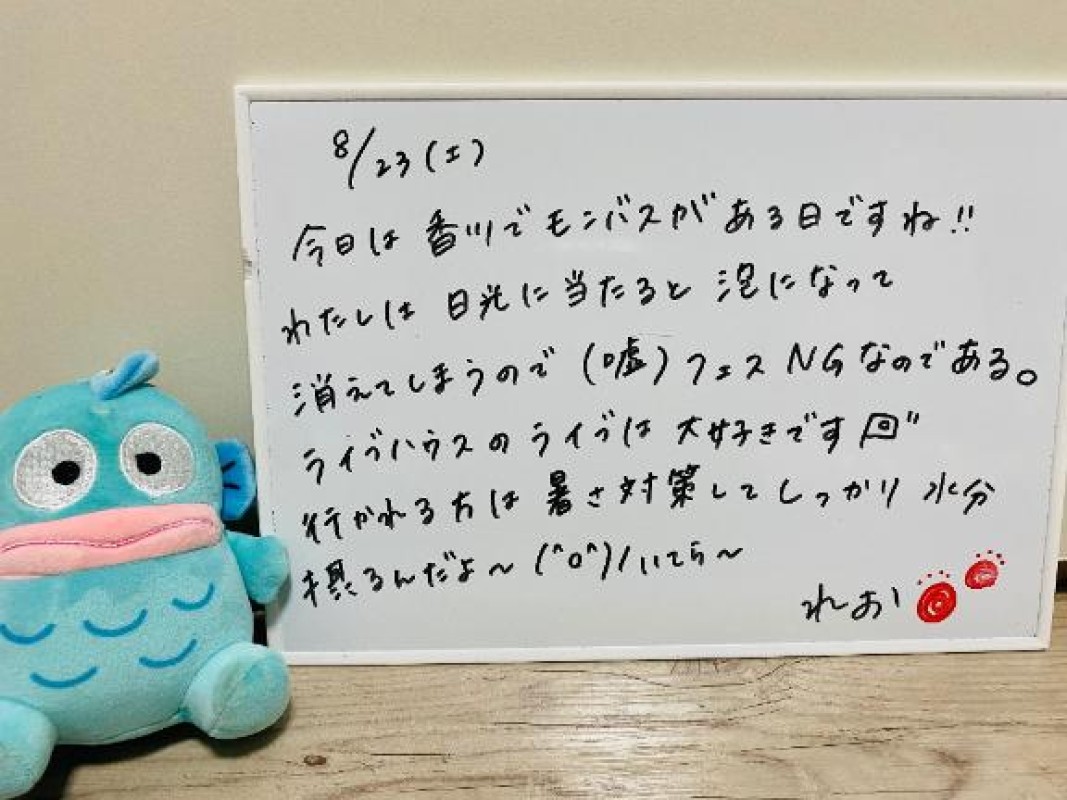 8/23(土)
今日は香川でモンバスがある日ですね!!
わたしは日光に当たると泡になって
消えてしまうので(嘘)フェスNGなのである。
ライブハウスのライブは大好きです
行かれる方は暑さ対策してしっかり水分
摂るんだよ〜(^o^)/いてら〜
れお